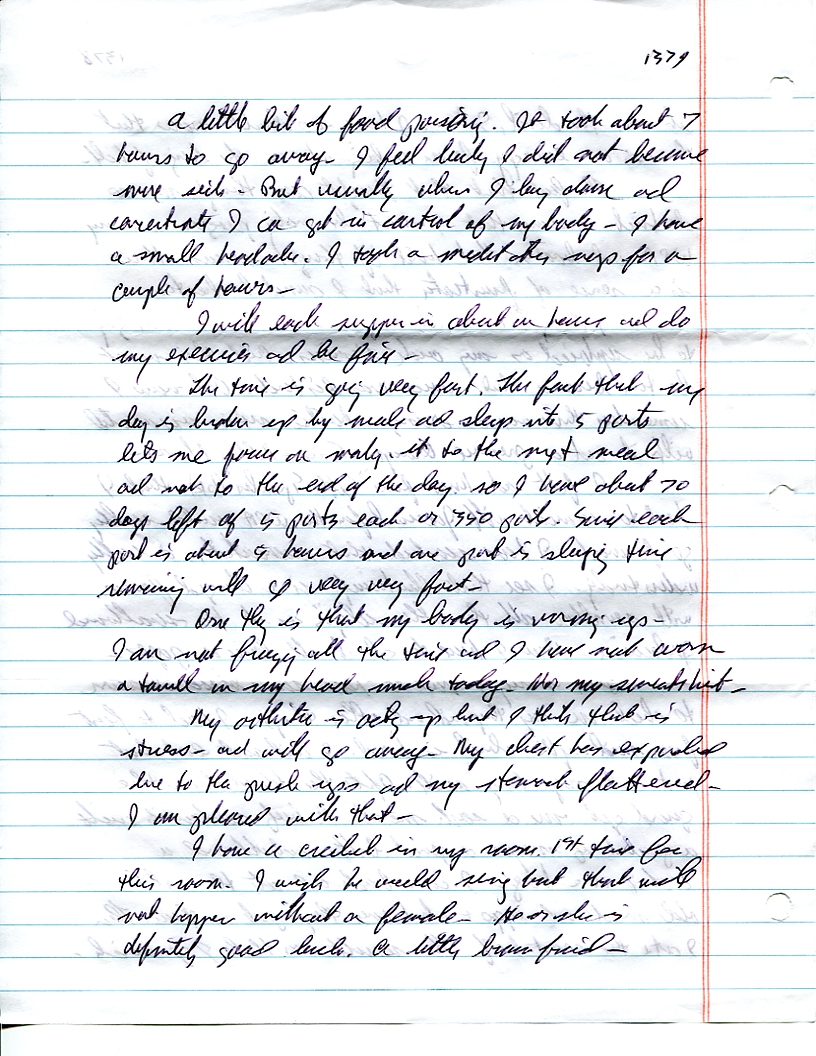 1379
a little bit of food poisoning. It took about 7
hours to go away - I feel lucky I did not become
more sick - But usually when I lay down ad
concentrate I ca get in control of my body - I have
a small headache. I took a meditation nap for a
couple of hours -
I will each supper in about an hours ad do
my exercises ad be fine -
The time is going very fast. The fact that my
day is broken up by meals ad sleep into 5 parts
lets me focus on making it to the next meal
ad not to the end of the day. so I have about 70
days left of 5 parts each or 350 parts. Since each
part is about 5 hours and one part is sleeping time
remaining will go very very fast -
One thing is that my body is warming up -
I am not freezing all the time ad I have not worn
a towell on my head much today. Nor my sweatshirt -
My arthritis is acting up but I think that is
stress - ad will go away - My chest has expanded
due to the push ups ad my stomach flattened -
I am pleased with that -
I have a cricket in my room. 1st time for
this room. I wish he would sing but that will
not happen without a female - He or she is
definitely good luck. a little brown friend -